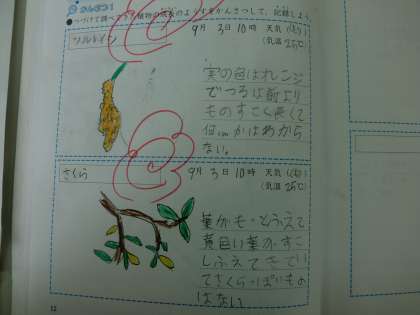 つづけて調べてきた植物の成長のようすをかんさつして、記録しよう
9月 3日 10時 天気(はれ)
(気温 25℃)
実の色はオレンジ
でつるは前より
ものすごく長くて
何cmかはわから
ない。
さくら
9月 3日 10時 天気(はれ)
(気温 25℃)
葉がもっとふえて
黄色い葉がすこ
しふえてきてい
てさくらっぽいもの
はない
12